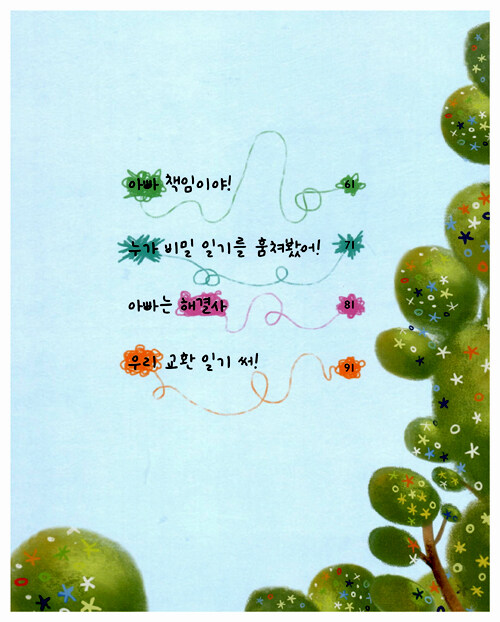 아빠 책임이야! 61
누가 비밀 일기를 훔쳐봤어! 71
아빠는 해결사 81
우리 교환 일기 써! 91